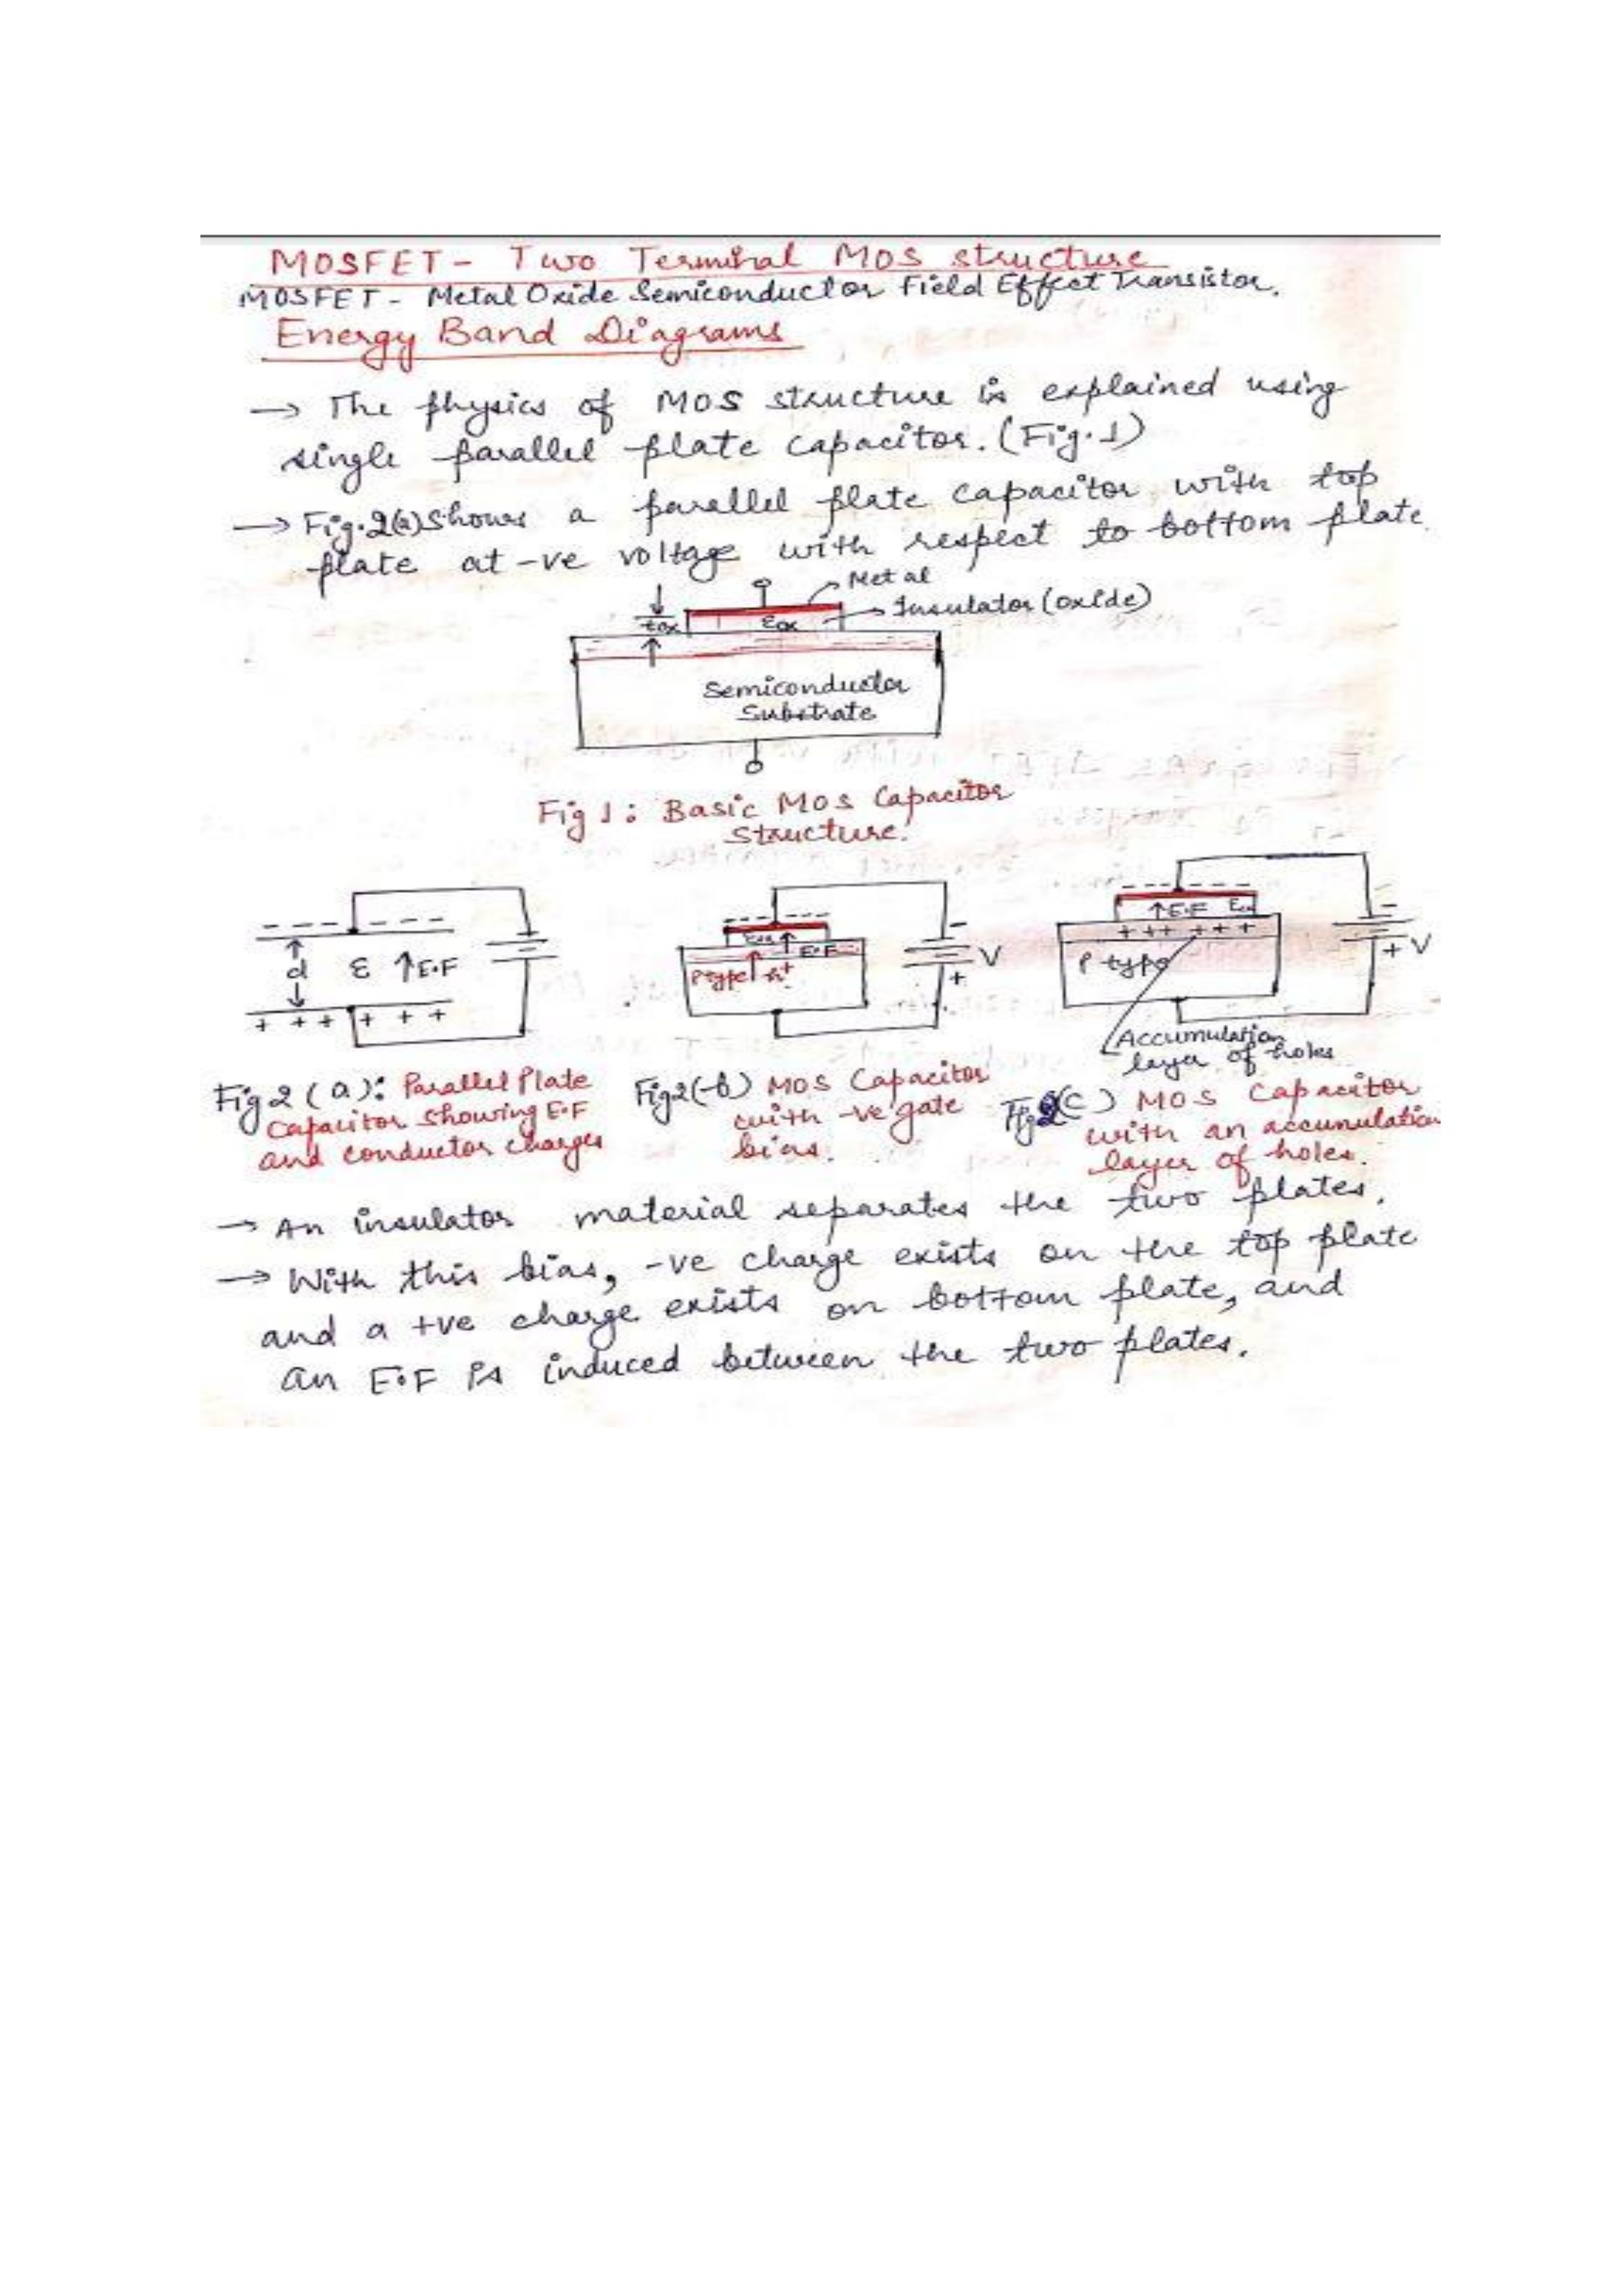 MOSFET - Two Terminal MOS structure
MOSFET - Metal Oxide Semiconductor Field Effect Transistor.
Energy Band Diagrams
→ The physics of MOS structure is explained using
single parallel plate capacitor. (Fig.1)
→ Fig.2(a) shows a parallel plate capacitor with top
plate at -ve voltage with respect to bottom plate.
Metal
Insulator (oxide)
tox
Eox
Semiconductor
Substrate
Fig 1: Basic MOS Capacitor
Structure.
d ε ↑E.F
+ + + + + +
Eox ↑ E.F
P type ↑ h+
V
+
↑E.F Eox
+ + + + + +
P type
+ V
Accumulation
layer of holes
Fig 2 (a): Parallel Plate
Capacitor showing E.F
and conductor charges
Fig 2(b) MOS Capacitor
with -ve gate
bias.
Fig 2(c) MOS Capacitor
with an accumulation
layer of holes.
→ An insulator material separates the two plates.
→ With this bias, -ve charge exists on the top plate
and a +ve charge exists on bottom plate, and
an E.F is induced between the two plates.